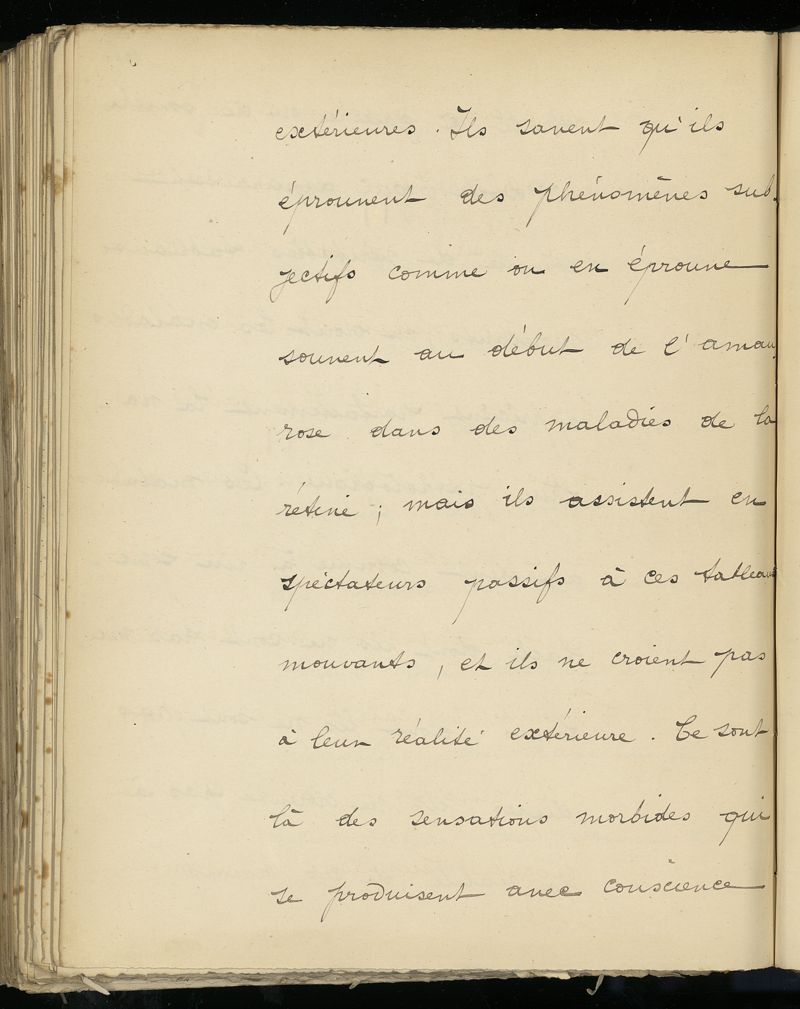 extérieures. Ils savent qu'ils
éprouvent des phénomènes sub-
jectifs comme on en éprouve
souvent au début de l'amau-
rose dans des maladies de la
rétine ; mais ils assistent en
spectateurs passifs à ces tableaux
mouvants, et ils ne croient pas
à leur réalité extérieure. Ce sont
là des sensations morbides qui
se produisent avec conscience